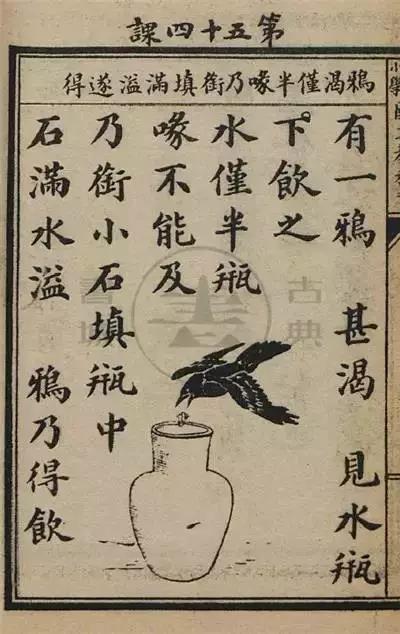 第五十四課
鴉渴僅半喙乃銜填滿溢遂得
有一鴉 甚渴 見水瓶
下飲之
水僅半瓶
喙不能及
乃銜小石填瓶中
石滿水溢 鴉乃得飲
古典